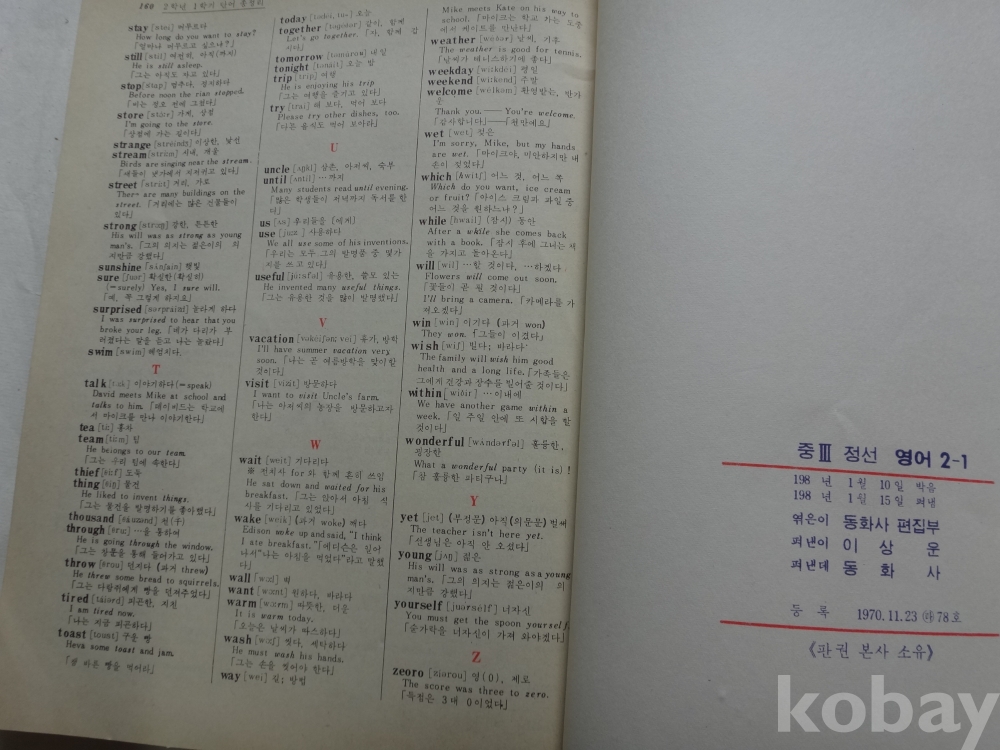 160 2학년 1학기 단어 총정리
stay [stei] 머무르다
How long do you want to stay?
「얼마나 머무르고 싶으냐?」
still [stil] 여전히, 아직(까지)
He is still asleep.
「그는 아직도 자고 있다」
stop [stɑp] 멈추다, 정지하다
Before noon the rian stopped.
「비는 정오 전에 그쳤다」
store [stɔːr] 가게, 상점
I'm going to the store.
「상점에 가는 길이다」
strange [streindʒ] 이상한, 낯선
stream [striːm] 시내, 개울
Birds are singing near the stream.
「새들이 냇가에서 지저귀고 있다」
street [striːt] 거리, 가로
There are many buildings on the
street. 「거리에는 많은 건물들이
있다」
strong [strɔːŋ] 강한, 튼튼한
His will was as strong as young
man's. 「그의 의지는 젊은이의 의
지만큼 강했다」
sunshine [sʌ́nʃain] 햇빛
sure [ʃuər] 확실한(확실히)
(=surely) Yes, I sure will.
「예, 꼭 그렇게 하지요」
surprised [sərpráizd] 놀라게 하다
I was surprised to hear that you
broke your leg. 「네가 다리가 부
러졌다는 말을 듣고 나는 놀랐다」
swim [swim] 헤엄치다.
T
talk [tɔːk] 이야기하다(=speak)
David meets Mike at school and
talks to him. 「데이비드는 학교에
서 마이크를 만나 이야기한다」
tea [tiː] 홍차
team [tiːm] 팀
He belongs to our team.
「그는 우리 팀에 속한다」
thief [θiːf] 도둑
thing [θiŋ] 물건
He liked to invent things.
「그는 물건을 발명하기를 좋아했다」
thousand [θáuzənd] 천(무)
through [θruː] …을 통하여
He is going through the window.
「그는 창문을 통해 들어가고 있다」
throw [θrou] 던지다 (과거 threw)
He threw some bread to squirrels.
「그는 다람쥐에게 빵을 던져주었다」
tired [táiərd] 피곤한, 지친
I am tired now.
「나는 지금 피곤하다」
toast [toust] 구운 빵
Heva some toast and jam.
「쨈 바른 빵을 먹어라」
today [tədéi, tu-] 오늘
together [təgéðər] 같이, 함께
Let's go together. 「자, 함께 갑
시다」
tomorrow [təmɑ́rou] 내일
tonight [tənáit] 오늘 밤
trip [trip] 여행
He is enjoying his trip
「그는 여행을 즐기고 있다」
try [trai] 해 보다, 먹어 보다
Please try other dishes, too.
「다른 음식도 먹어 보아라」
U
uncle [ʌ́ŋkl] 삼촌, 아저씨, 숙부
until [əntíl] …까지
Many students read until evening.
「많은 학생들이 저녁까지 독서를 한
다」
us [ʌs] 우리들을 (에게)
use [juːz] 사용하다
We all use some of his inventions.
「우리는 모두 그의 발명품 중 몇가
지를 쓰고 있다」
useful [júːsfəl] 유용한, 쓸모 있는
He invented many useful things.
「그는 유용한 것을 많이 발명했다」
V
vacation [vəkéiʃən; vei] 휴가, 방학
I'll have summer vacation very
soon. 「나는 곧 여름방학을 맞이할
것이다」
visit [vízit] 방문하다
I want to visit Uncle's farm.
「나는 아저씨의 농장을 방문하고자
한다」
W
wait [weit] 기다리다
※ 전치사 for와 함께 흔히 쓰임
He sat down and waited for his
breakfast. 「그는 앉아서 아침 식
사를 기다리고 있었다」
wake [weik] (과거 woke) 깨다
Edison wake up and said, "I think
I ate breakfast. "「에디슨은 일어
나서"나는 아침을 먹었다"라고 말했
다」
wall [wɔːl] 벽
want [wɔnt] 원하다, 바라다
warm [wɔːrm] 따뜻한, 더운
It is warm today.
「오늘은 날씨가 따스하다」
wash [wɔːʃ] 씻다, 세탁하다
He must wash his hands.
「그는 손을 씻어야 한다」
way [wei] 길; 방법
Mike meets Kate on his way to
school. 「마이크는 학교 가는 도중
에서 케이트를 만난다」
weather [wéðər] 날씨, 기후
The weather is good for tennis.
「날씨가 테니스하기에 좋다」
weekday [wíːkdèi] 평일
weekend [wíːkènd] 주말
welcome [wélkəm] 환영받는, 반가
운
Thank you.—— You're welcome.
「감사합니다」——「천만에요」
wet [wet] 젖은
I'm sorry, Mike, but my hands
are wet. 「마이크야, 미안하지만 내
손이 젖었다」
which [hwitʃ] 어느 것, 어느 쪽
Which do you want, ice cream
or fruit? 「아이스 크림과 과일 중
어느 것을 원하느냐?」
while [hwail] (잠시) 동안
After a while she comes back
with a book. 「잠시 후에 그녀는 책
을 가지고 돌아온다」
will [wil] …할 것이다, …하겠다
Flowers will come out soon.
「꽃들이 곧 필 것이다」
I'll bring a camera. 「카메라를 가
져오겠다」
win [win] 이기다 (과거 won)
They won. 「그들이 이겼다」
wish [wiʃ] 빌다; 바라다
The family will wish him good
health and a long life. 「가족들은
그에게 건강과 장수를 빌어줄 것이다」
within [wiðín] …이내에
We have another game within a
week. 「일 주일 안에 또 시합을 할
것이다」
wonderful [wʌ́ndərfəl] 훌륭한,
굉장한
What a wonderful party (it is) !
「참 훌륭한 파티구나」
Y
yet [jet] (부정문) 아직(의문문) 벌써
The teacher isn't here yet.
「선생님은 아직 안 오셨다」
young [jʌŋ] 젊은
His will was as strong as a young
man's. 「그의 의지는 젊은이의 의
지만큼 강했다」
yourself [juərsélf] 너자신
You must get the spoon yourself.
「숟가락을 너자신이 가져 와야겠다」
Z
zeoro [zíərou] 영(0), 제로
The score was three to zero.
「득점은 3 대 0이었다」
중 III 정선 영어 2-1
198 년 1월 10일 박음
198 년 1월 15일 펴냄
엮은이 동화사 편집부
펴낸이 이 상 운
펴낸데 동 화 사
등 록 1970.11.23 ㉳78호
《판권 본사 소유》
kobay